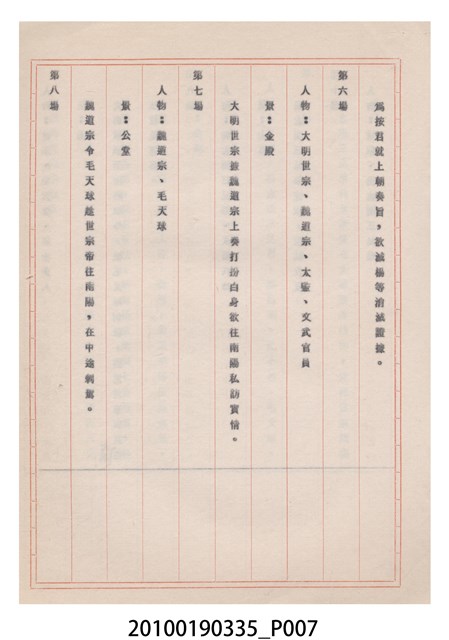 為按君就上朝奏旨，欲滅楊等消滅證據。
第六場
人物：大明世宗、魏道宗、太監、文武官員
景：金殿
大明世宗準魏道宗上奏打扮白身欲往南陽私訪實情。
第七場
人物：魏道宗、毛天球
景：公堂
魏道宗令毛天球趁世宗帝往南陽，在中途弒駕。
第八場
20100190335_P007